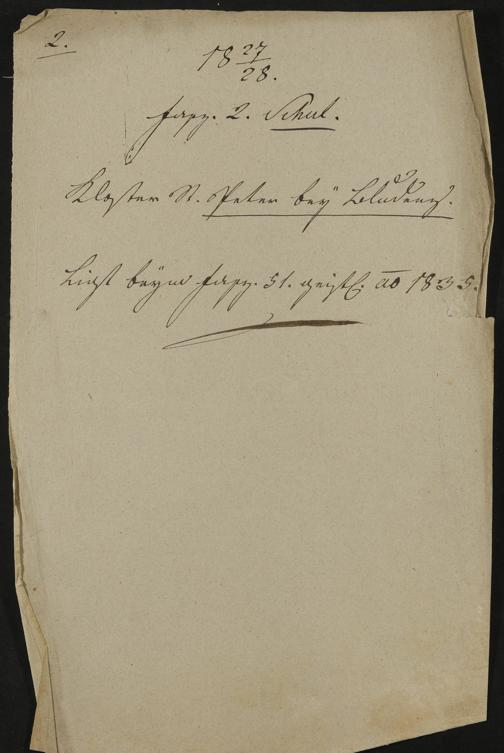 2.
18 27/28.
Fasz. 2. Schul.
Kloster St. Peter bey Bludenz.
Liegt beym Fasz. 51. geistl. ao 1835.